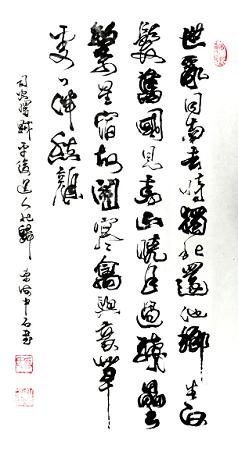 世亂同南去時獨北還他鄉生白
髮舊國見青山曉月過殘壘
繁星宿故關寒禽與衰草
處處伴愁顏
司空曙賊平後送人北歸 中石書